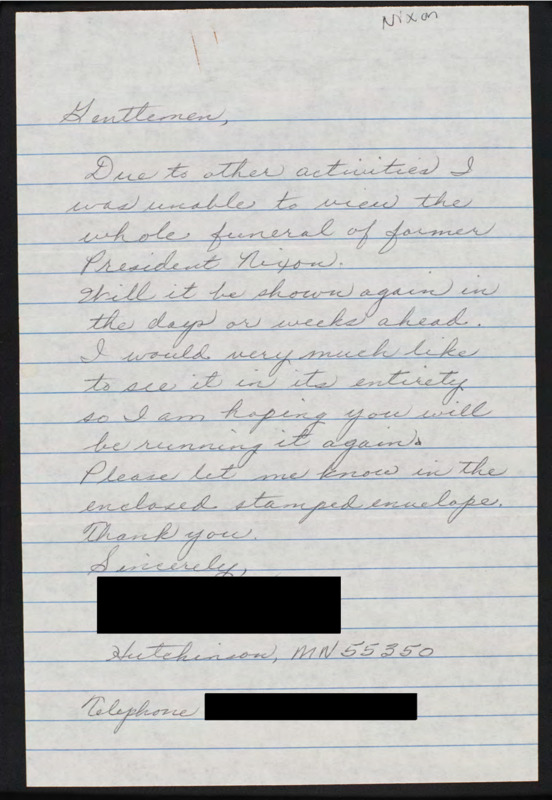 Nixon
Gentlemen,
Due to other activities I
was unable to view the
whole funeral of former
President Nixon.
Will it be shown again in
the days or weeks ahead.
I would very much like
to see it in its entirety
so I am hoping you will
be running it again.
Please let me know in the
enclosed stamped envelope.
Thank you.
Sincerely,
Hutchinson, MN 55350
Telephone